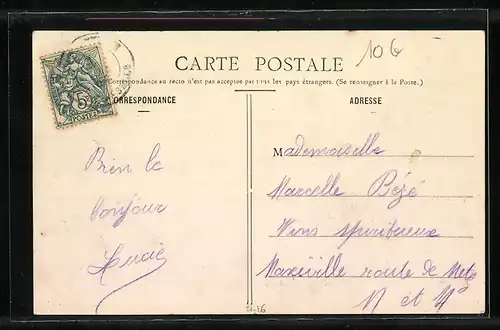 CARTE POSTALE
106
(La Correspondance au recto n'est pas acceptée par tous les pays étrangers. (Se renseigner à la Poste.)
CORRESPONDANCE
ADRESSE
5
POSTES
Bien le
bonjour
Lucie
Mademoiselle
Marcelle Pézé
Vins spiritueux
Maxeville route de Metz
M et Mlle